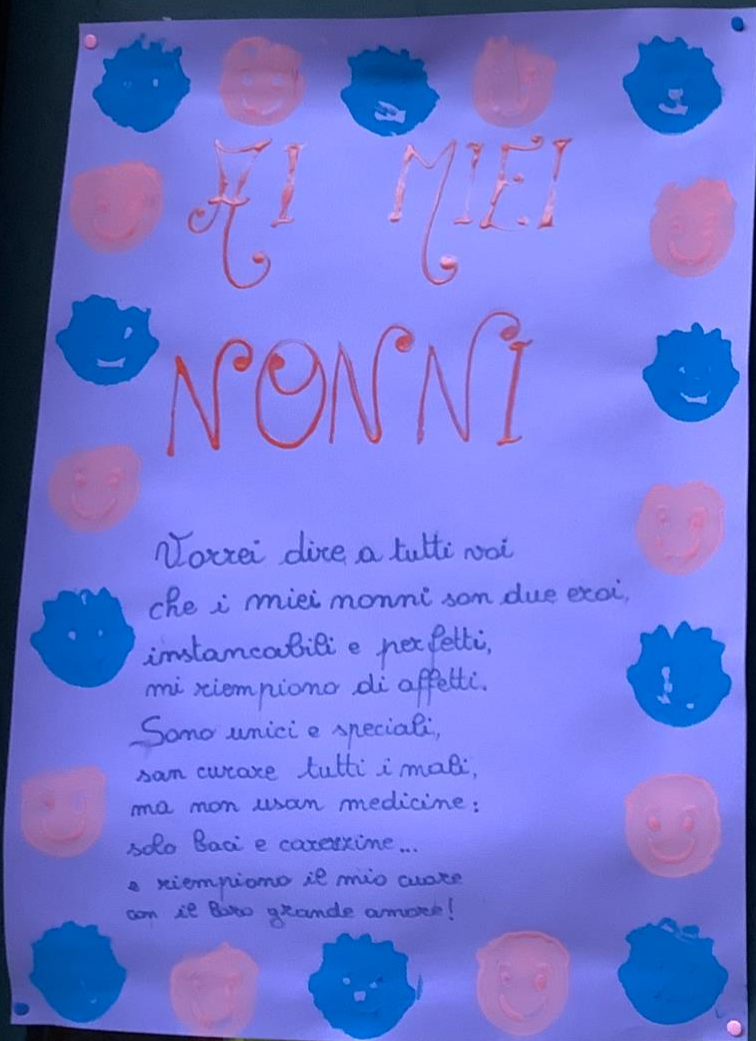 AI MIEI
NONNI
Vorrei dire a tutti voi
che i miei nonni son due eroi,
instancabili e perfetti,
mi riempiono di affetti.
Sono unici e speciali,
san curare tutti i mali,
ma non usan medicine:
solo baci e carezzine...
e riempiono il mio cuore
con il loro grande amore!